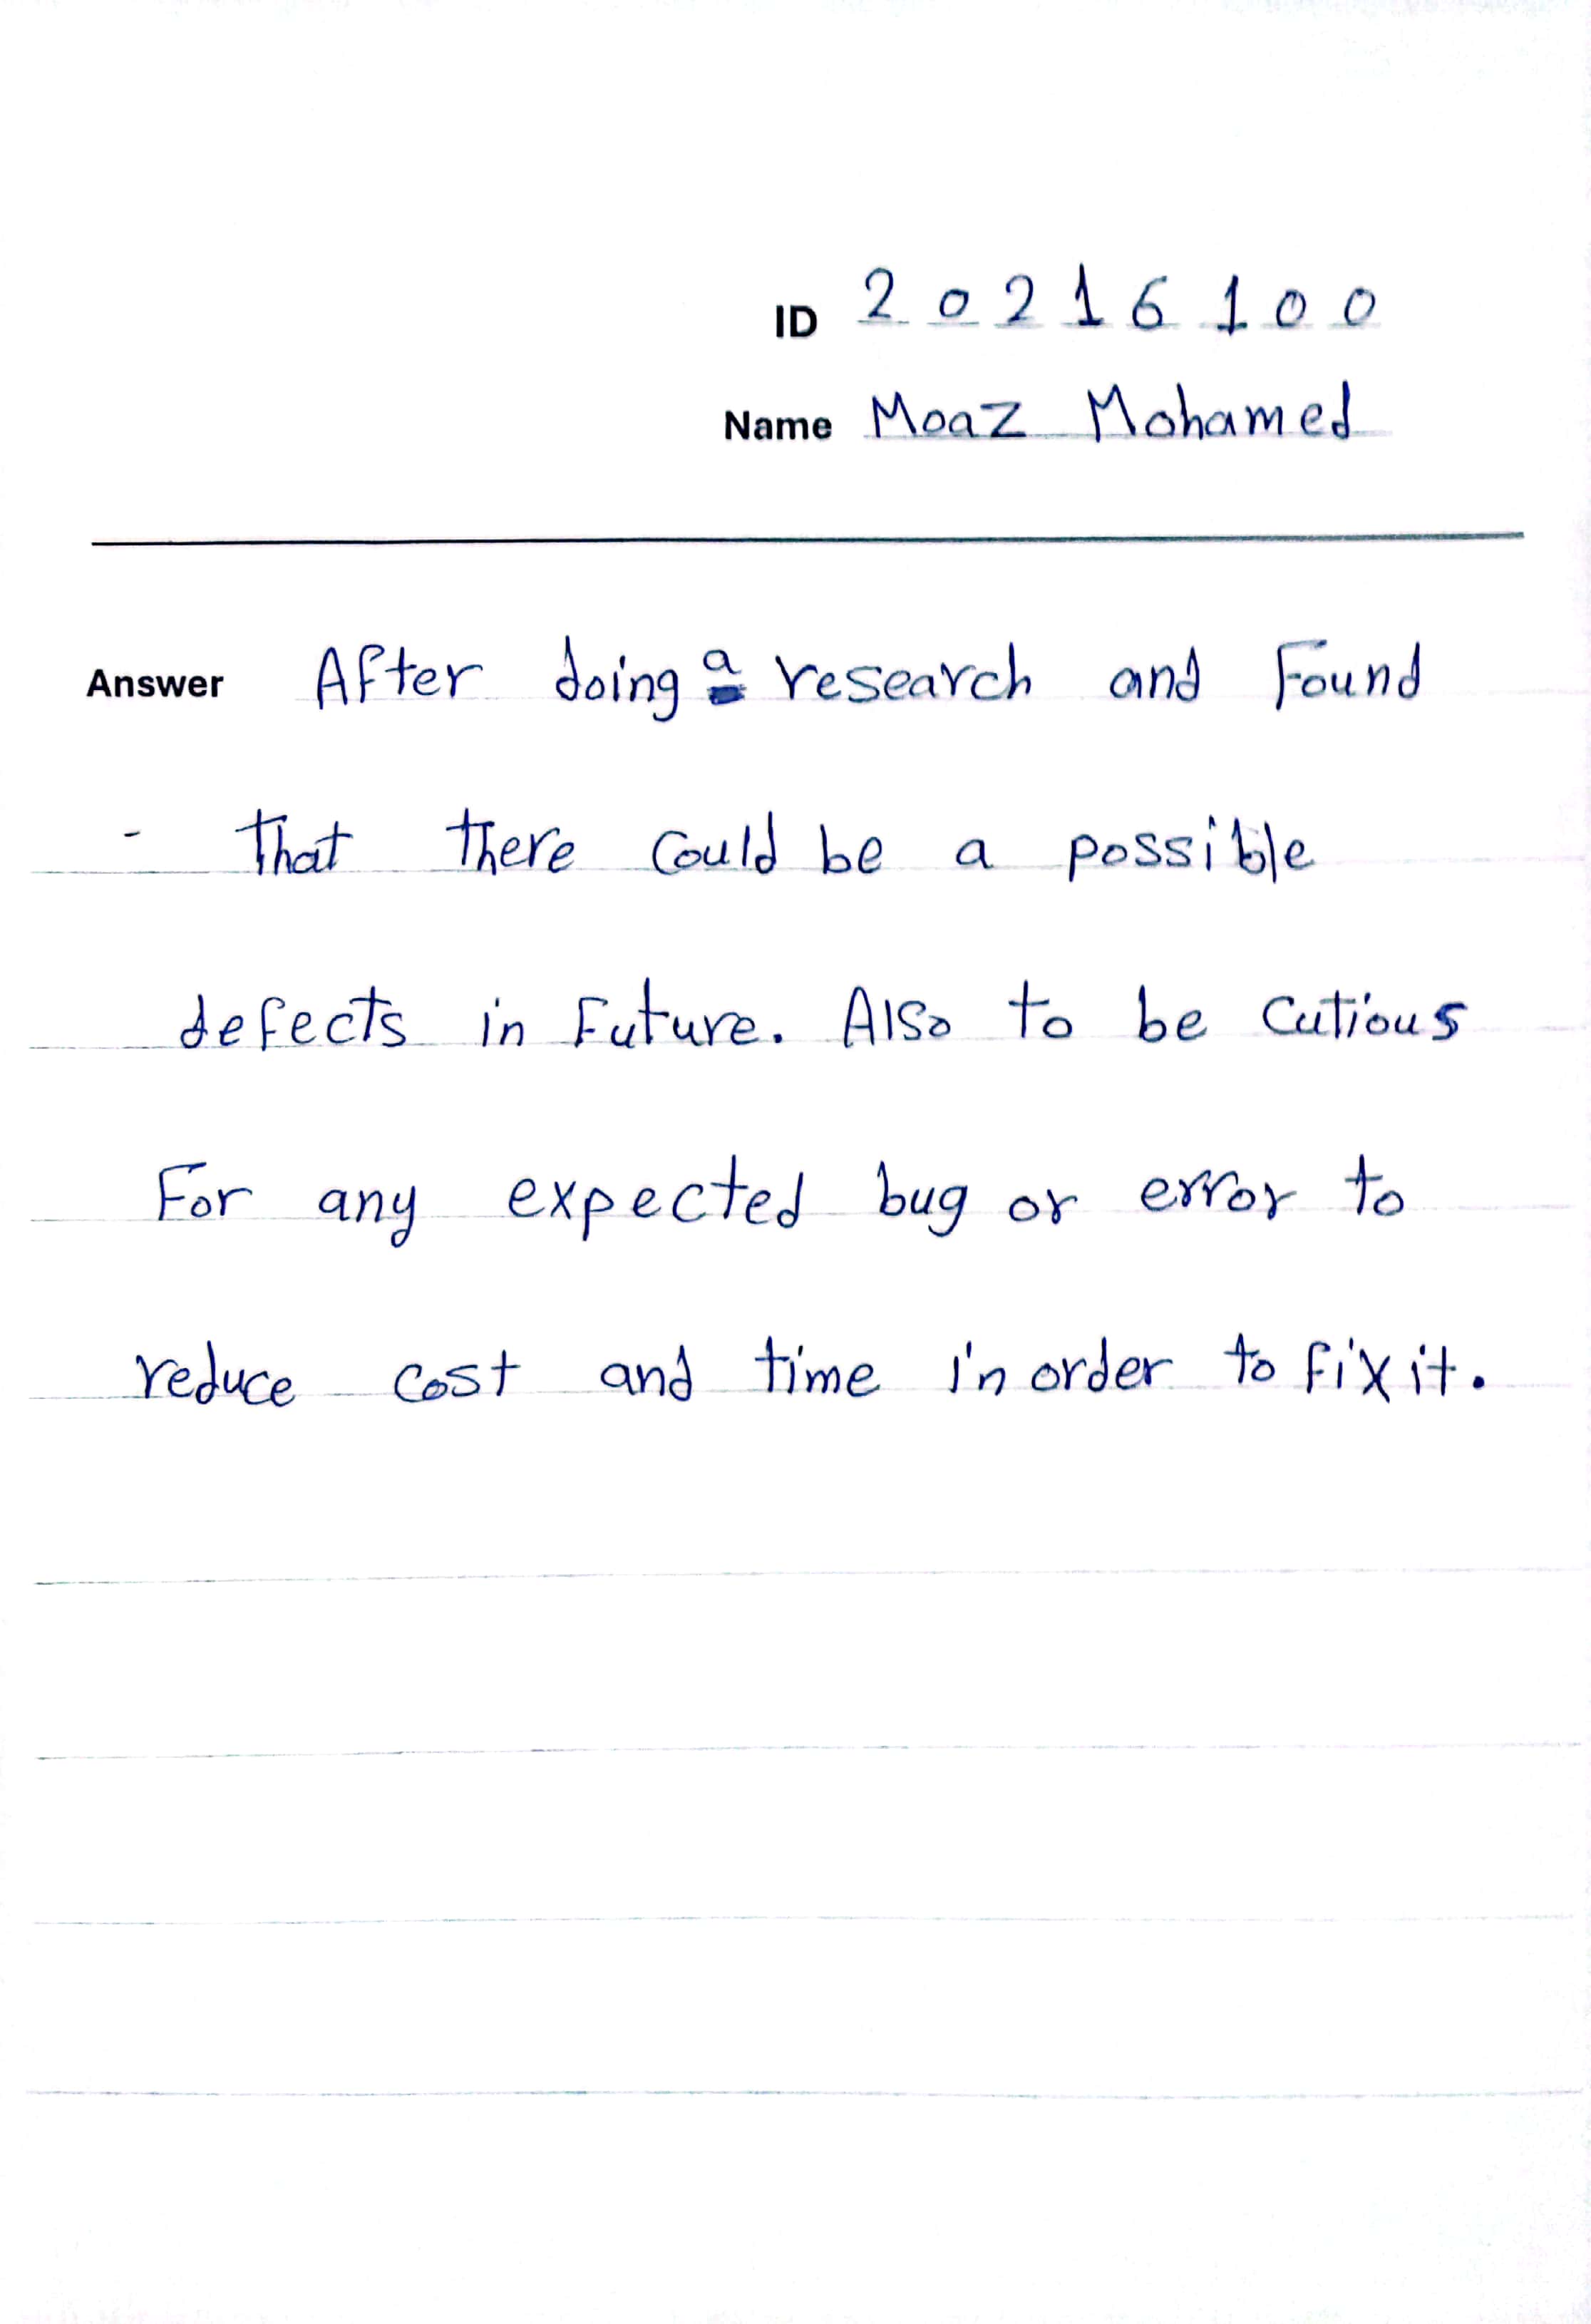 ID 20216100
Name Moaz Mohamed
Answer After doing a research and Found
- that there could be a possible
defects in Future. Also to be Cutious
For any expected bug or error to
reduce cost and time in order to fix it.